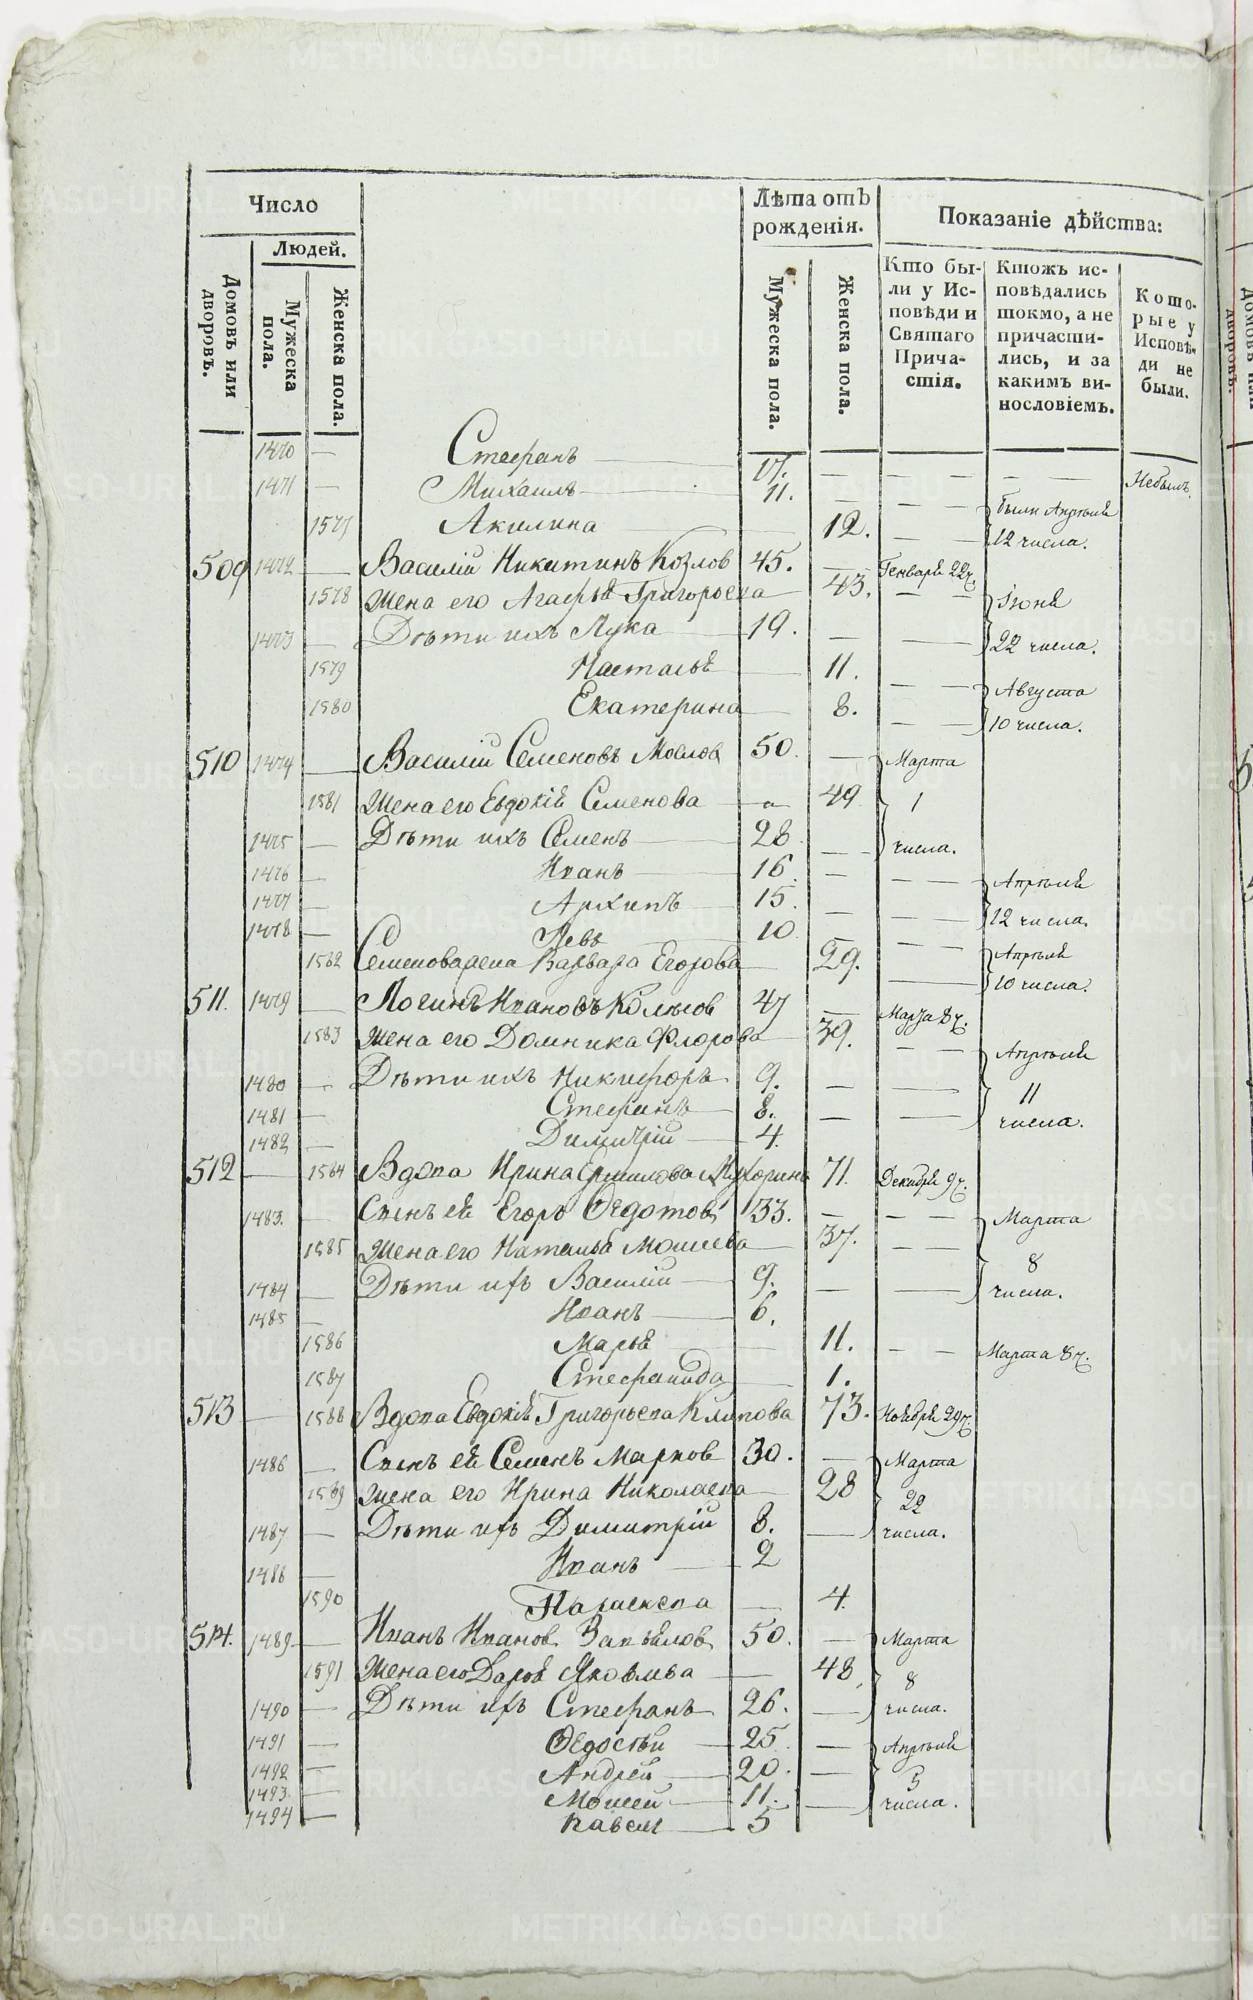 Число
Людей.
Домовъ или дворовъ.
Мужеска пола.
Женска пола.
Лѣта отъ рожденія.
Мужеска пола.
Женска пола.
Показаніе дѣйства:
Кто бы-
ли у Ис-
повѣди и
Святаго
Прича-
стія.
Ктожъ ис-
повѣдались
токмо, а не
причасти-
лись, и за
какимъ ви-
нословіемъ.
Кото-
рые у
Исповѣ-
ди не
были.
1470 — Стефанъ 17. — — — — — Небылъ
1471 — Михаилъ 11. — — — были Апрѣля
1577 Акилина 12. — — 12 числа.
509 1472 — Василій Никитинъ Козлов 45. — Генваря 22ч.
1578 Жена его Агафья Григорьева 43. — — Іюня
1473 — Дѣти ихъ Лука 19. — — 22 числа.
1579 Насталья 11. — — Августа
1580 Екатерина 8. — — 10 числа.
510 1474 — Василій Семеновъ 50. — Марта
1581 Жена его Евдокія Семенова 49 1
1475 — Дѣти ихъ Семенъ 28 — числа.
1476 — Иванъ 16. — — — Апрѣля
1477 — Архипъ 15. — — — 12 числа.
1478 — Левъ 10 — — — Апрѣля
1582 Семенова жена Варвара Егорова 29. — — 10 числа.
511. 1479 — Логинъ Ивановъ 47 — Марта 8ч.
1583 Жена его Домника Флорова 39. — — Апрѣля
1480 — Дѣти ихъ Никифоръ 9. — — 11
1481 — Стефанъ 8. — — числа.
1482 — Димитрій 4.
512 — 1584 Вдова Ирина Ермилова 71. Декабря 9ч.
1483. — Сынъ ея Егоръ Ѳедотовъ 33. — — — Марта
1585 Жена его Наталья Моисева 37. — — 8
1484 — Дѣти ихъ Василій 9. — — числа.
1485 — Иванъ 6.
1586 Марья 11. — — Марта 8ч.
1587 Стефанида 1.
513 — 1588 Вдова Евдокія Григорьева 73. Ноября 29ч.
1486 — Сынъ ея Семенъ Марков 30. — Марта
1589 Жена его Ирина Николаева 28 22
1487 — Дѣти ихъ Димитрій 8. — числа.
1488 — Иванъ 2
1590 Параскева 4.
514. 1489 — Иванъ Иванов 50. — Марта
1591 Жена его Дарья Яковлева 48. 8
1490 — Дѣти ихъ Стефанъ 26. — числа.
1491 — Ѳедосѣй 25. — Апрѣля
1492 — Андрей 20. — 5
1493 — Моисей 11. — числа.
1494 — Павелъ 5
METRIKI.GASO-URAL.RU